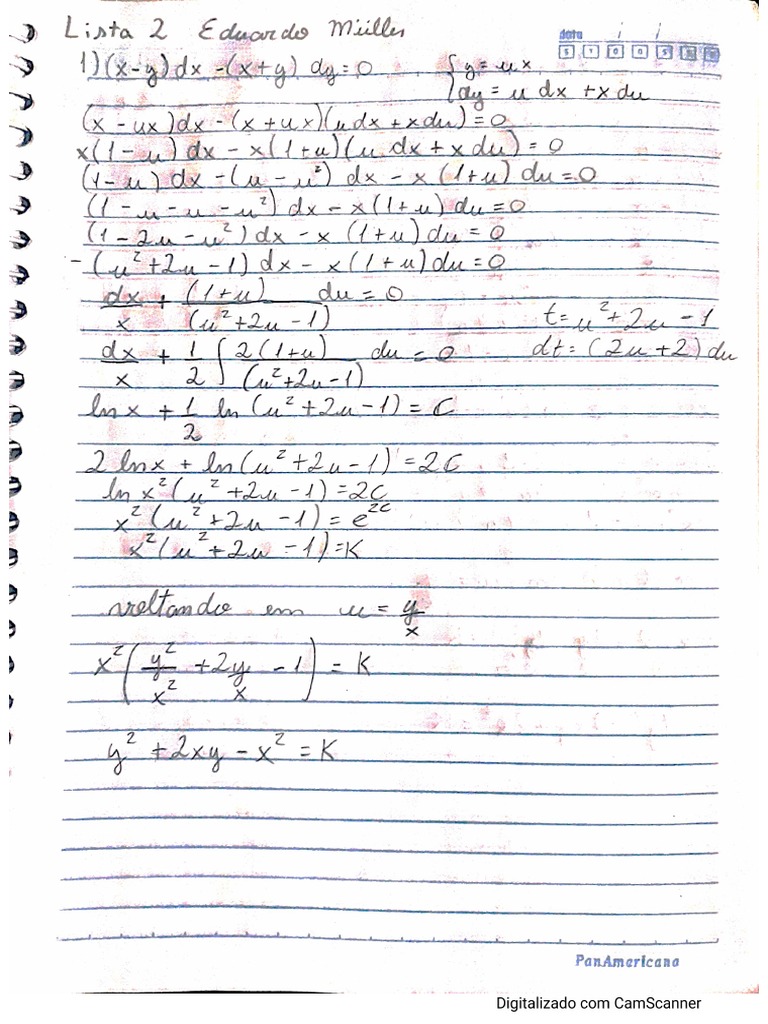 Lista 2 Eduardo Müller
data / /
S T Q Q S S D
1) (x-y) dx -(x+y) dy = 0 { y = ux
dy = u dx + x du
(x - ux) dx - (x + ux)(u dx + x du) = 0
x(1 - u) dx - x(1+u)(u dx + x du) = 0
(1-u) dx - (u - u²) dx - x (1+u) du = 0
(1 - u - u - u²) dx - x(1+u) du = 0
(1 - 2u - u²) dx - x (1+u) du = 0
- (u² + 2u - 1) dx - x(1+u) du = 0
dx/x + (1+u)/(u² + 2u - 1) du = 0
t = u² + 2u - 1
dx/x + 1/2 ∫ 2(1+u)/(u² + 2u - 1) du = 0 dt = (2u + 2) du
ln x + 1/2 ln (u² + 2u - 1) = C
2 ln x + ln (u² + 2u - 1) = 2C
ln x² (u² + 2u - 1) = 2C
x² (u² + 2u - 1) = e^2C
x² (u² + 2u - 1) = K
voltando em u = y/x
x² (y²/x² + 2y/x - 1) = K
y² + 2xy - x² = K
PanAmericana
Digitalizado com CamScanner